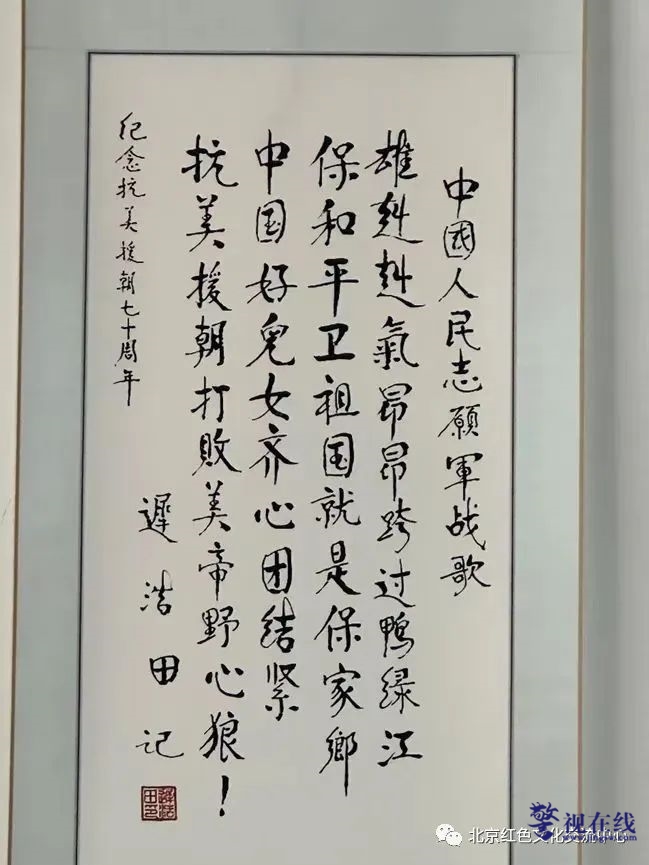 中國人民志願軍战歌
雄赳赳氣昂昂跨过鴨绿江
保和平卫祖国就是保家鄉
中国好兒女齐心团结紧
抗美援朝打敗美帝野心狼！
纪念抗美援朝七十周年
遲浩田记
警视在线
北京红色文化交流中心